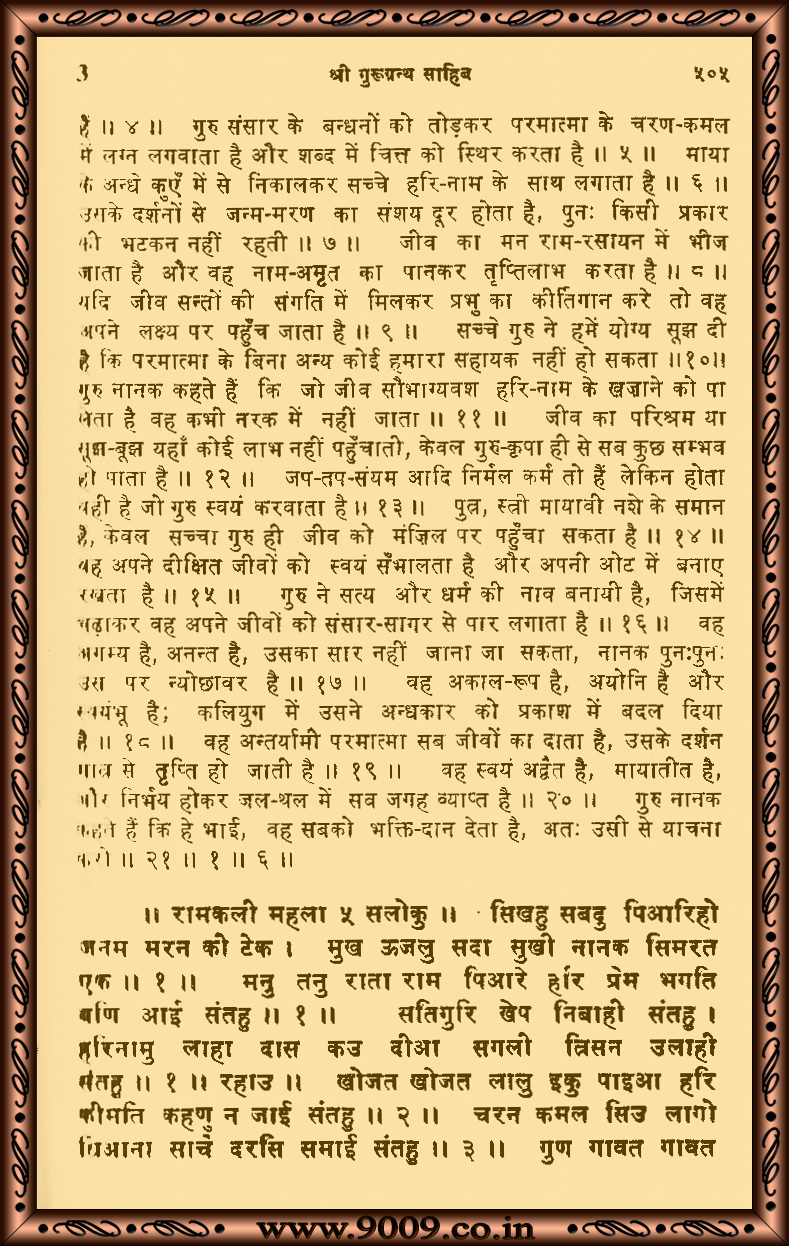 3 श्री गुरूग्रन्थ साहिब ५०५
हैं ॥ ४ ॥ गुरु संसार के बन्धनों को तोड़कर परमात्मा के चरण-कमल
में लग्न लगवाता है और शब्द में चित्त को स्थिर करता है ॥ ५ ॥ माया
के अन्धे कुएँ में से निकालकर सच्चे हरि-नाम के साथ लगाता है ॥ ६ ॥
उसके दर्शनों से जन्म-मरण का संशय दूर होता है, पुनः किसी प्रकार
की भटकन नहीं रहती ॥ ७ ॥ जीव का मन राम-रसायन में भीज
जाता है और वह नाम-अमृत का पानकर तृप्तिलाभ करता है ॥ ८ ॥
यदि जीव सन्तों की संगति में मिलकर प्रभु का कीर्तिगान करे तो वह
अपने लक्ष्य पर पहुँच जाता है ॥ ९ ॥ सच्चे गुरु ने हमें योग्य सूझ दी
है कि परमात्मा के बिना अन्य कोई हमारा सहायक नहीं हो सकता ॥१०॥
गुरु नानक कहते हैं कि जो जीव सौभाग्यवश हरि-नाम के खज़ाने को पा
लेता है वह कभी नरक में नहीं जाता ॥ ११ ॥ जीव का परिश्रम या
सूझ-बूझ यहाँ कोई लाभ नहीं पहुँचाती, केवल गुरु-कृपा ही से सब कुछ सम्भव
हो पाता है ॥ १२ ॥ जप-तप-संयम आदि निर्मल कर्म तो हैं लेकिन होता
वही है जो गुरु स्वयं करवाता है ॥ १३ ॥ पुत्र, स्त्री मायावी नशे के समान
है, केवल सच्चा गुरु ही जीव को मंज़िल पर पहुँचा सकता है ॥ १४ ॥
वह अपने दीक्षित जीवों को स्वयं सँभालता है और अपनी ओट में बनाए
रखता है ॥ १५ ॥ गुरु ने सत्य और धर्म की नाव बनायी है, जिसमें
चढ़ाकर वह अपने जीवों को संसार-सागर से पार लगाता है ॥ १६ ॥ वह
अगम्य है, अनन्त है, उसका सार नहीं जाना जा सकता, नानक पुनःपुनः
उस पर न्योछावर है ॥ १७ ॥ वह अकाल-रूप है, अयोनि है और
स्वयंभू है; कलियुग में उसने अन्धकार को प्रकाश में बदल दिया
है ॥ १८ ॥ वह अन्तर्यामी परमात्मा सब जीवों का दाता है, उसके दर्शन
मात्र से तृप्ति हो जाती है ॥ १९ ॥ वह स्वयं अद्वैत है, मायातीत है,
और निर्भय होकर जल-थल में सब जगह व्याप्त है ॥ २० ॥ गुरु नानक
कहते हैं कि हे भाई, वह सबको भक्ति-दान देता है, अतः उसी से याचना
करो ॥ २१ ॥ १ ॥ ६ ॥
॥ रामकली महला ५ सलोकु ॥ सिखहु सबदु पिआरिहो
जनम मरन की टेक । मुख ऊजलु सदा सुखी नानक सिमरत
एक ॥ १ ॥ मनु तनु राता राम पिआरे हरि प्रेम भगति
बणि आई संतहु ॥ १ ॥ सतिगुरि खेप निबाही संतहु ।
हरिनामु लाहा दास कउ दीआ सगली त्रिसन उलाही
संतहु ॥ १ ॥ रहाउ ॥ खोजत खोजत लालु इकु पाइआ हरि
कीमति कहणु न जाई संतहु ॥ २ ॥ चरन कमल सिउ लागो
धिआना साचै दरसि समाई संतहु ॥ ३ ॥ गुण गावत गावत
www.9009.co.in